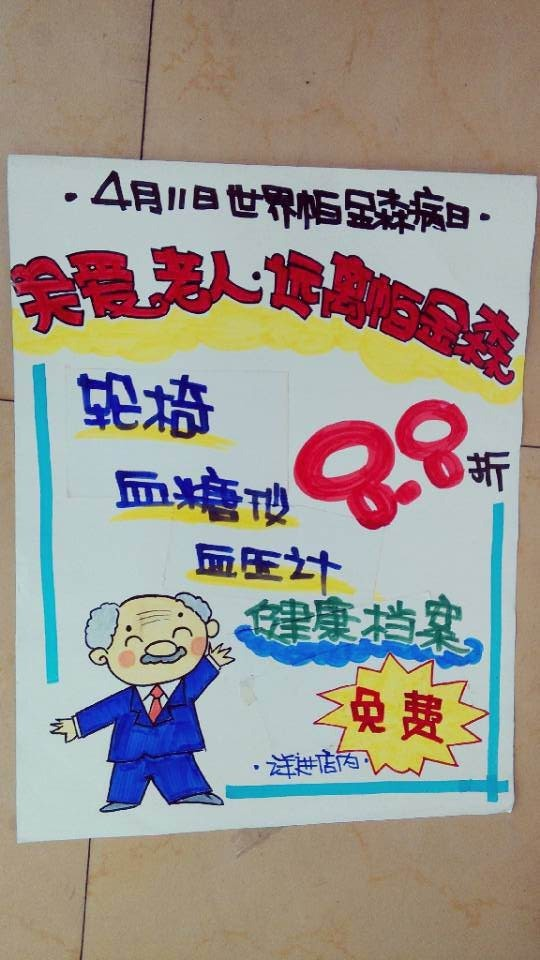 ·4月11日世界帕金森病日·
关爱老人·远离帕金森
轮椅
血糖仪
血压计
8.8折
健康档案
免费
·详进店内·